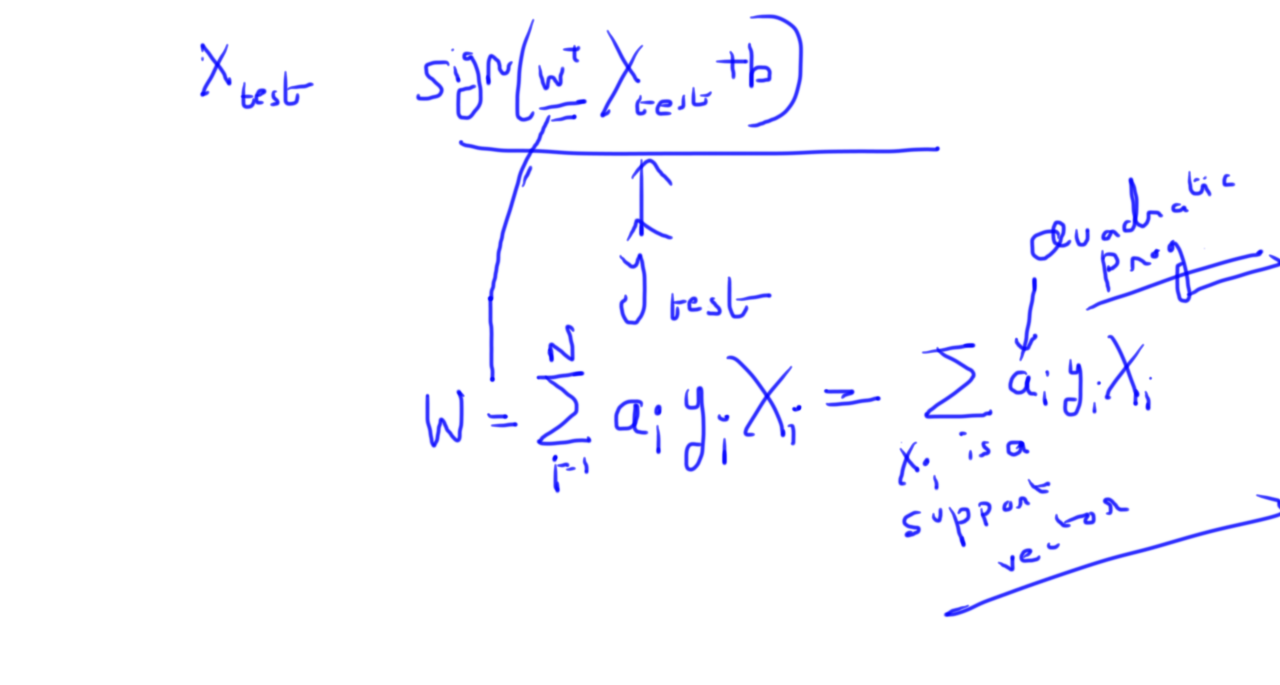 X_test sign(w^T X_test + b)
y_test
Quadratic
prog
W = \sum_{i=1}^{N} a_i y_i X_i = \sum a_i y_i X_i
X_i is a
support
vector